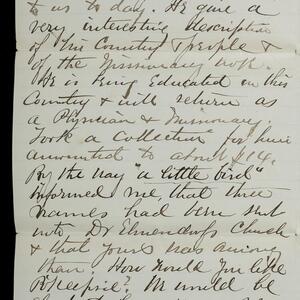 to us to day. He gave a
very interesting description
of his Country & people &
of the Missionary work.
He is being Educated in this
Country & will return as
a Physician & Missionary.
Took a Collection for him
amounted to about $14.
By the way "a little bird"
informed me, that three
names had been sent
into Dr Elmendorfs Church
& that yours was among
them. How would you like
We would be